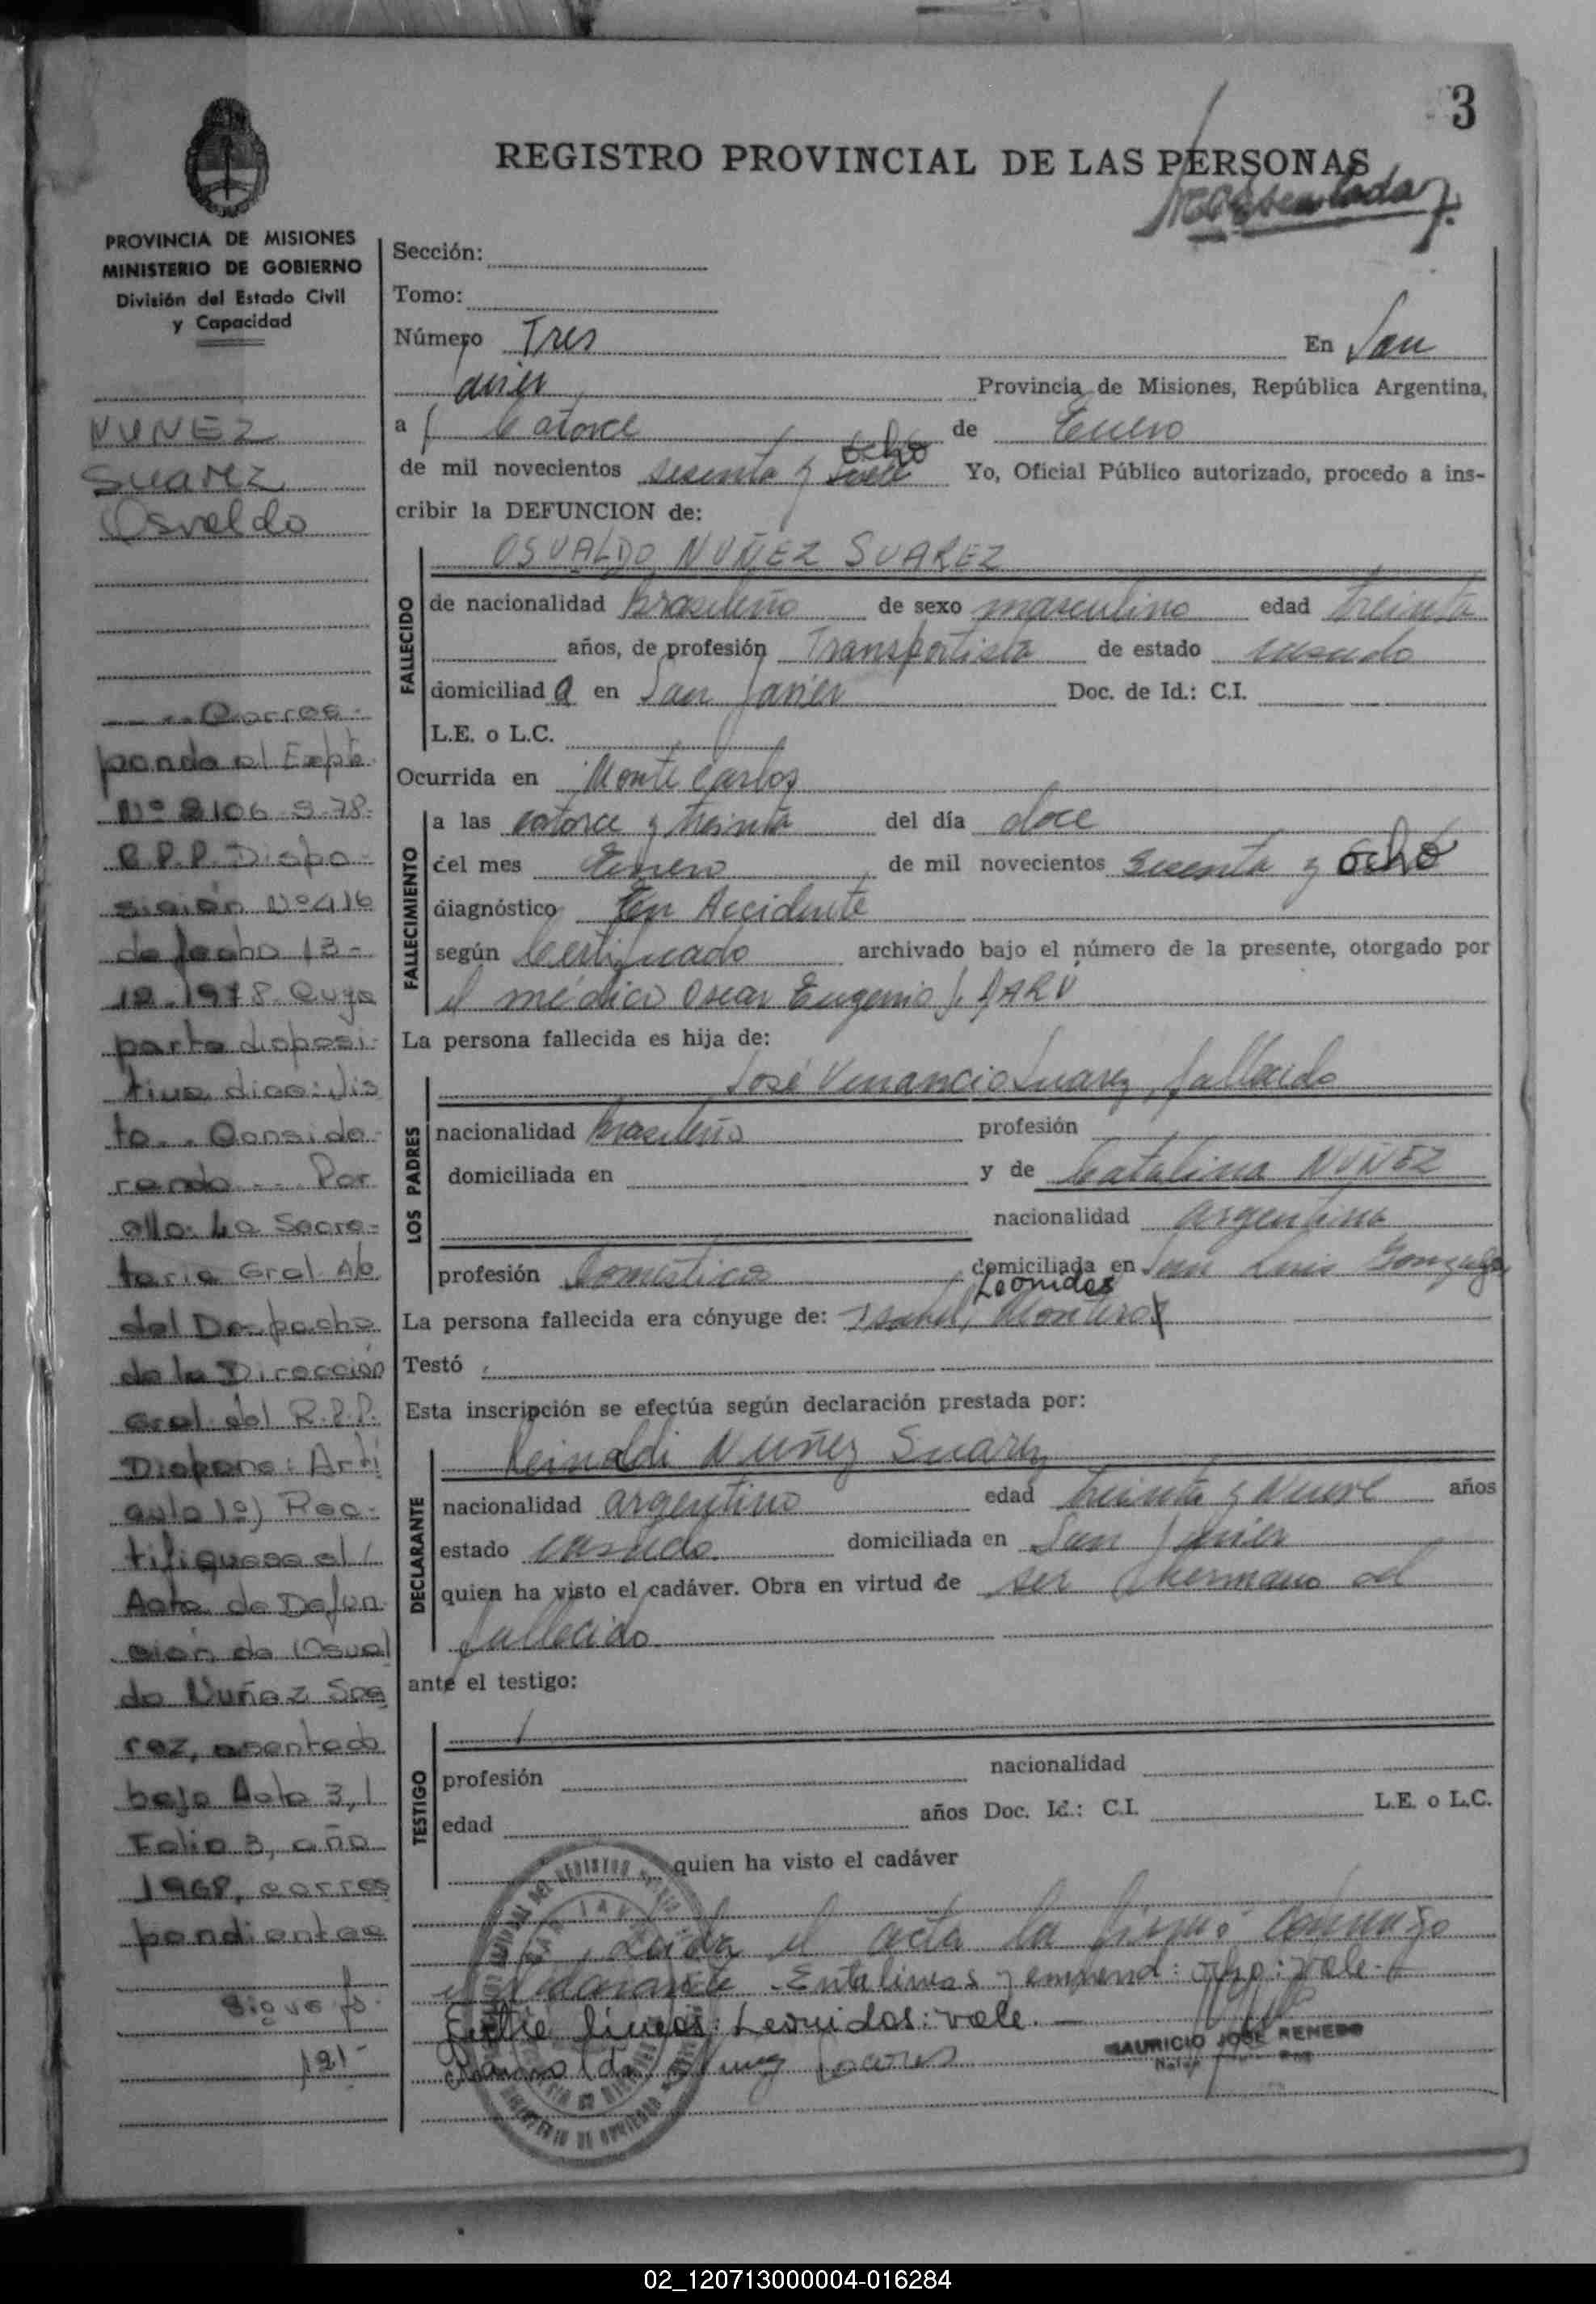 3
REGISTRO PROVINCIAL DE LAS PERSONAS
PROVINCIA DE MISIONES
MINISTERIO DE GOBIERNO
División del Estado Civil
y Capacidad
NUNEZ
Suarez
Osvaldo
Corres-
ponde al Expte
Nº 2106-S-78-
R.P.P. Dispo-
sición Nº 416
de fecha 13-
12-1978. Cuya
parte disposi-
tiva dice: Vis
to.. Conside-
rando... Por
ello: La Secre-
taria Gral. A/c
del Despacho
de la Dirección
Gral. del R.P.P.
Dispone: Artí
culo 1º) Rec-
tifíquese el
Acta de Defun-
ción de Osval
do Nuñez Soa
rez, asentado
bajo Acta 3,
Folio 3, año
1968, corres
pondientes
Sigue f.
121-
Sección:
Tomo:
Número Tres En San
Javier Provincia de Misiones, República Argentina,
a Catorce de Enero
de mil novecientos sesenta y ocho Yo, Oficial Público autorizado, procedo a ins-
cribir la DEFUNCION de:
FALLECIDO
OSVALDO NUÑEZ SUAREZ
de nacionalidad brasileño de sexo masculino edad treinta
años, de profesión Transportista de estado casado
domiciliad a en San Javier Doc. de Id.: C.I.
L.E. o L.C.
Ocurrida en Monte Carlos
FALLECIMIENTO
a las catorce y treinta del día doce
del mes Enero de mil novecientos sesenta y ocho
diagnóstico En Accidente
según Certificado archivado bajo el número de la presente, otorgado por
el médico Oscar Eugenio
La persona fallecida es hija de:
LOS PADRES
José Venancio Suarez, fallecido
nacionalidad brasileño profesión
domiciliada en y de Catalina NUÑEZ
nacionalidad argentina
profesión domestica domiciliada en San Luis Gonzaga
Leonidas
La persona fallecida era cónyuge de: Isabel, Montero
Testó
Esta inscripción se efectúa según declaración prestada por:
DECLARANTE
Reinaldi Nuñez Suarez
nacionalidad argentino edad treinta y Nueve años
estado casado domiciliada en San Javier
quien ha visto el cadáver. Obra en virtud de ser hermano del
fallecido
ante el testigo:
TESTIGO
profesión nacionalidad
edad años Doc. Id.: C.I. L.E. o L.C.
quien ha visto el cadáver
Leida el acta la firmó conmigo
el declarante - Entalineas y enmend: ocho: vale.-
Entre lineas: Leonidas: vale. —
MAURICIO JOSE RENEDO
02_120713000004-016284